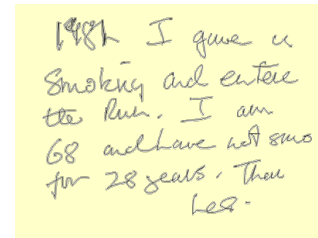 1982 I gave u
Smoking and entere
the Run. I am
68 and have not smo
for 28 years. Than
Les.